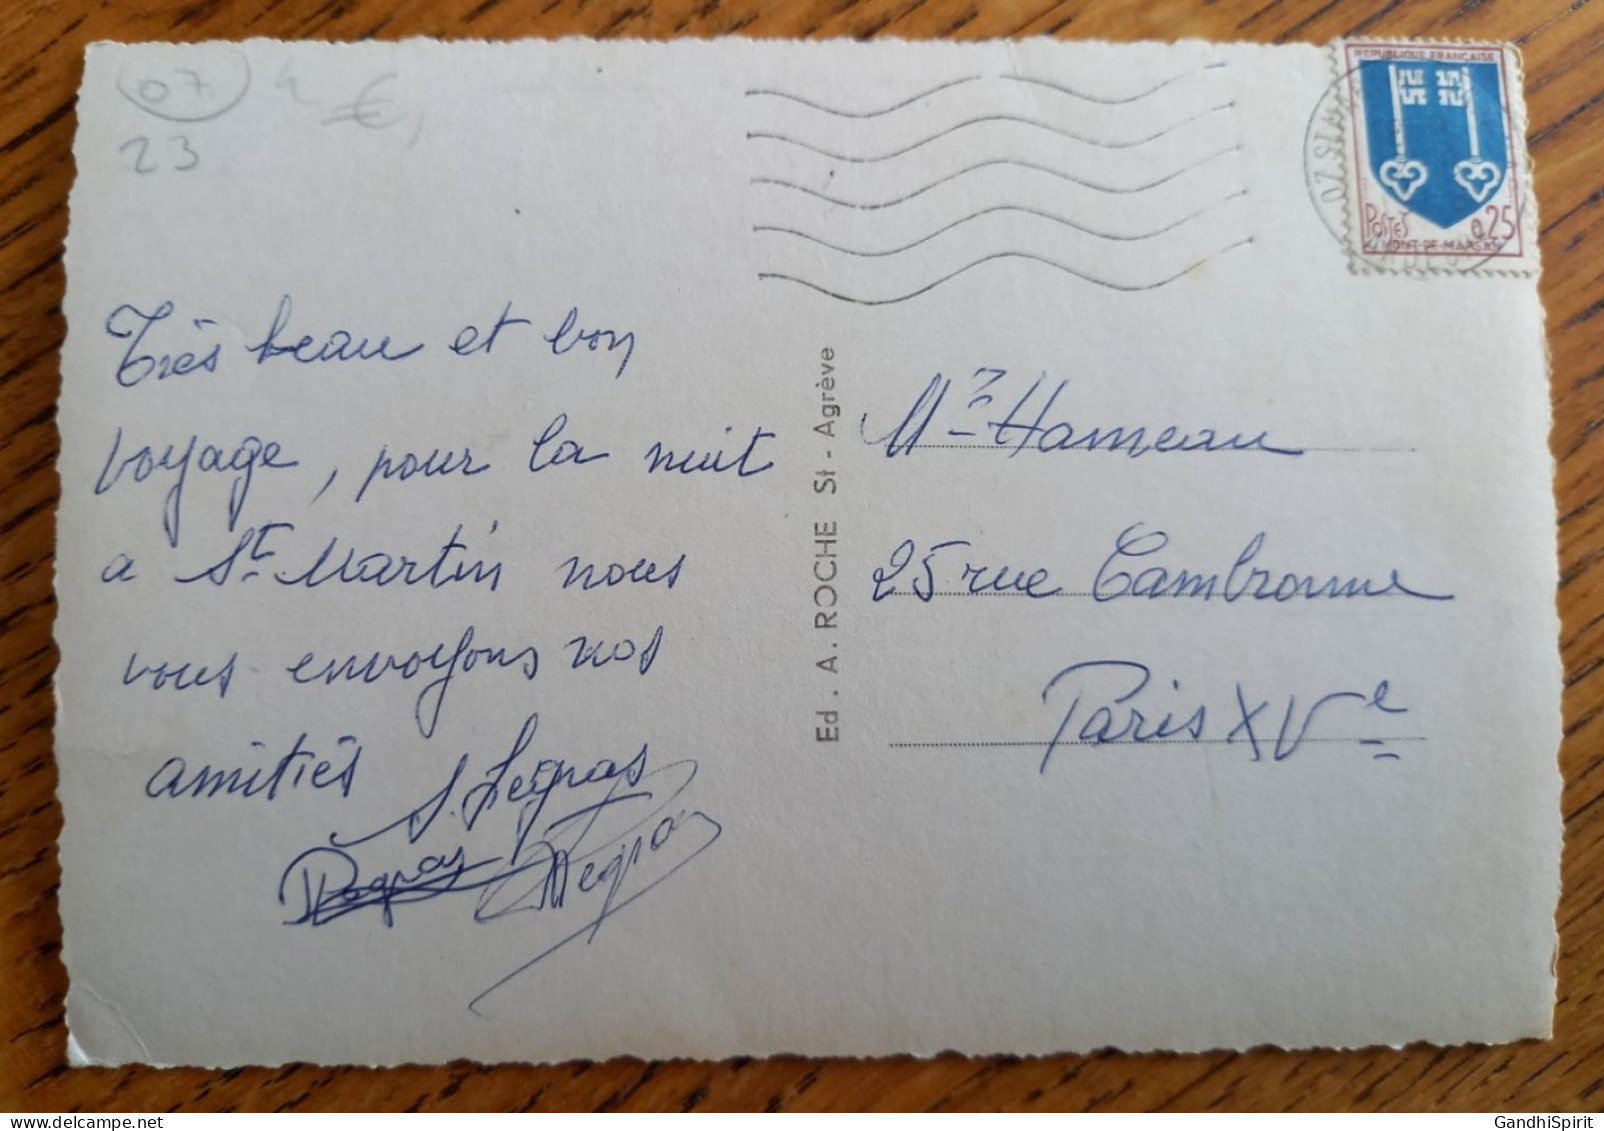 07
4 €
23
REPUBLIQUE FRANÇAISE
POSTES 0,25
MONT-DE-MARSAN
Très beau et bon
voyage, pour la nuit
a St Martin nous
vous envoyons nos
amitiés
Ed . A. ROCHE St - Agrève
Mr Hameau
25 rue Cambronne
Paris XVe
GandhiSpirit